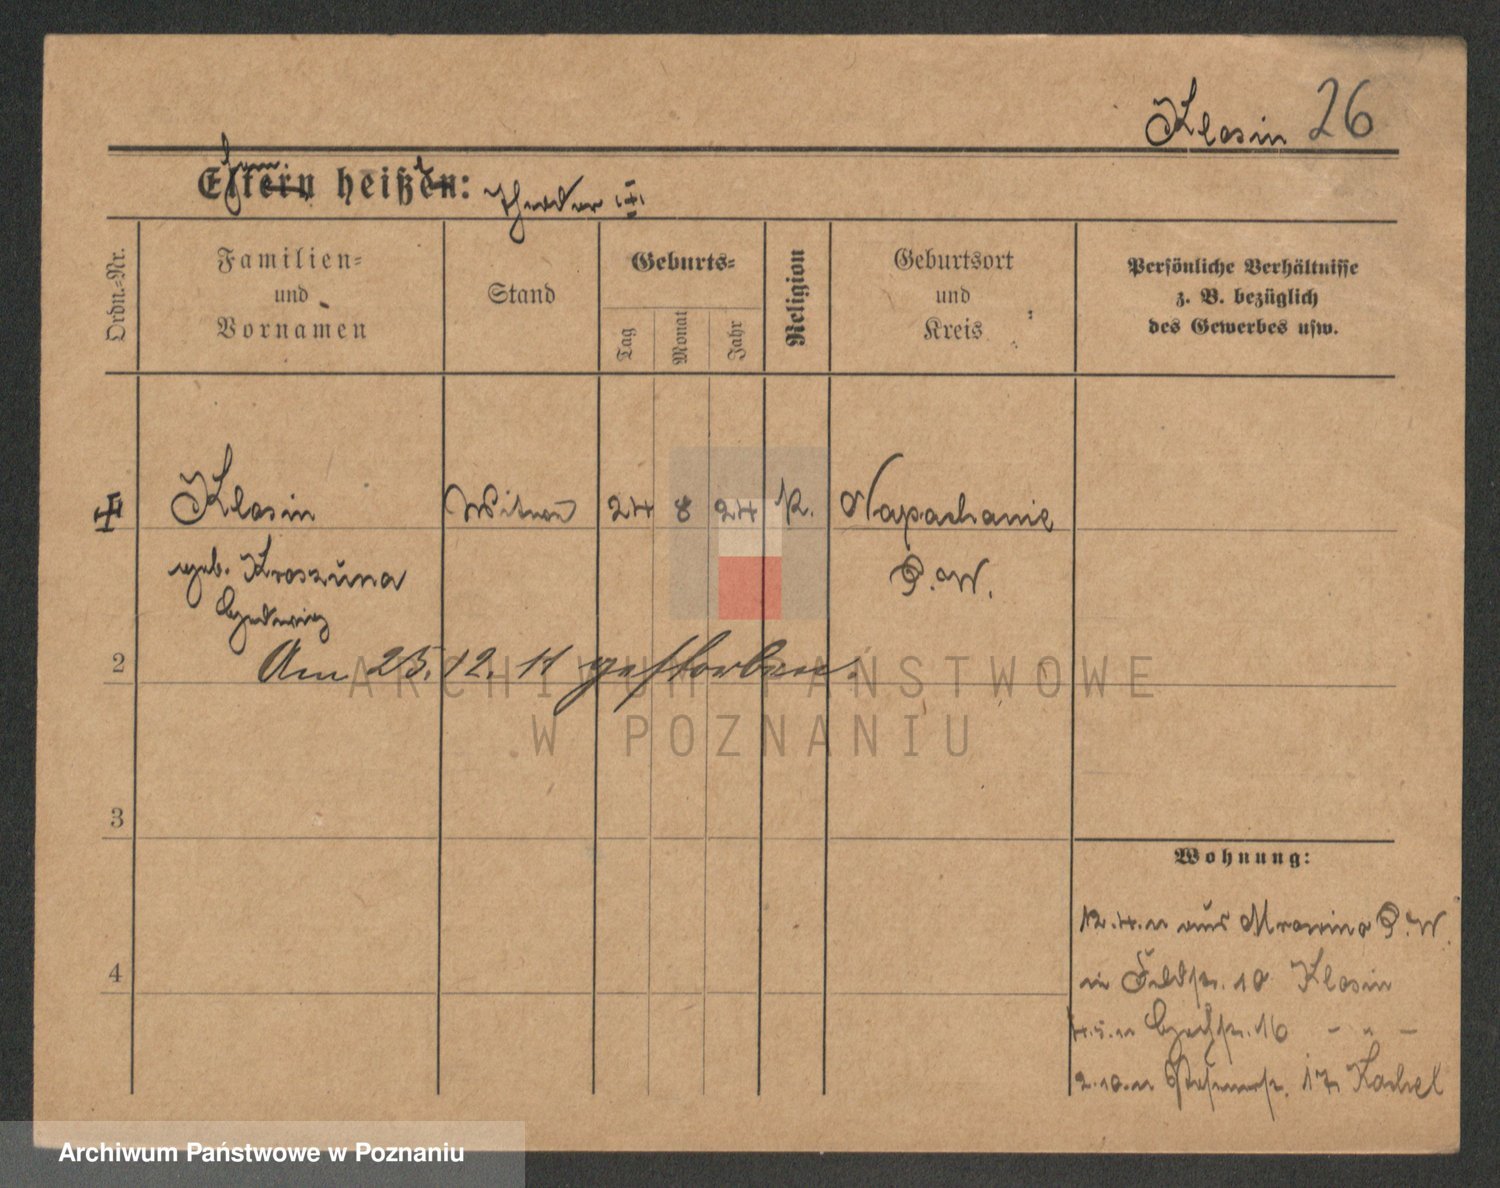 Klosin 26
Eltern heißen: Theodor
Ordn.-Nr.
Familien-
und
Vornamen
Stand
Geburts-
Tag
Monat
Jahr
Religion
Geburtsort
und
Kreis
Persönliche Verhältnisse
z. B. bezüglich
des Gewerbes usw.
Klosin Witwe 24 8 24 K. Napachanie
geb. Kroszuna P.W.
Hedwig
2
Am 25.12.11 gestorben.
3
Wohnung:
12.4.11 aus Mrowino P.W.
in Feldstr. 10 Klosin
16 - " -
4
2.10.11 17 Kachel
ARCHIWUM PAŃSTWOWE
W POZNANIU
Archiwum Państwowe w Poznaniu